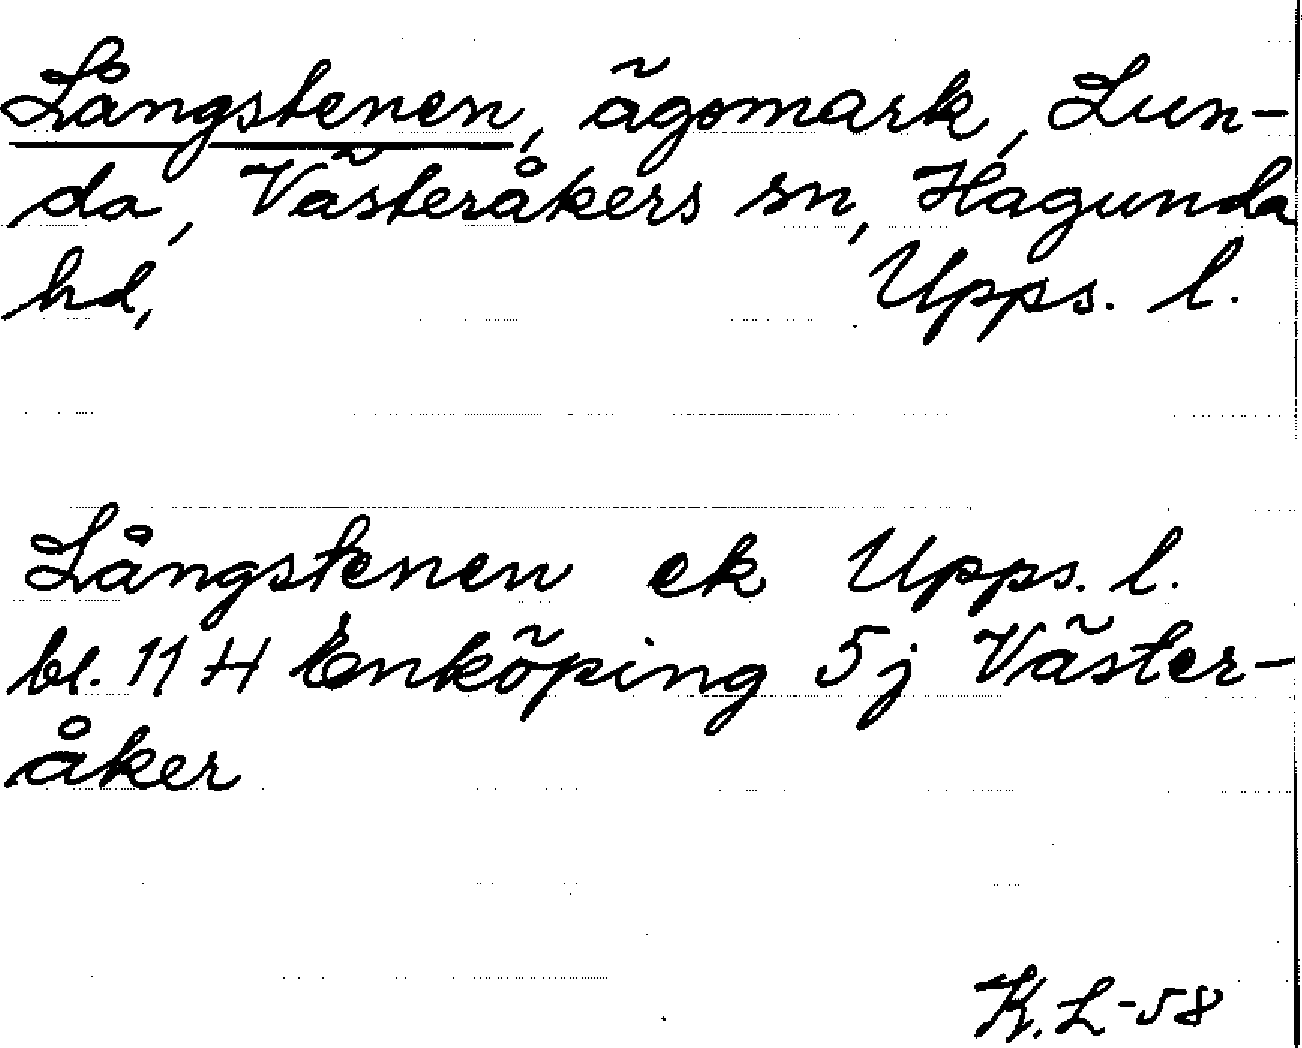 Långstenen, ägomark, Lun-
da, Västeråkers sn, Hagunda
hd, Upps. l.
Långstenen ek Upps. l.
bl. 11 H Enköping 5j Väster-
åker
K. L-58